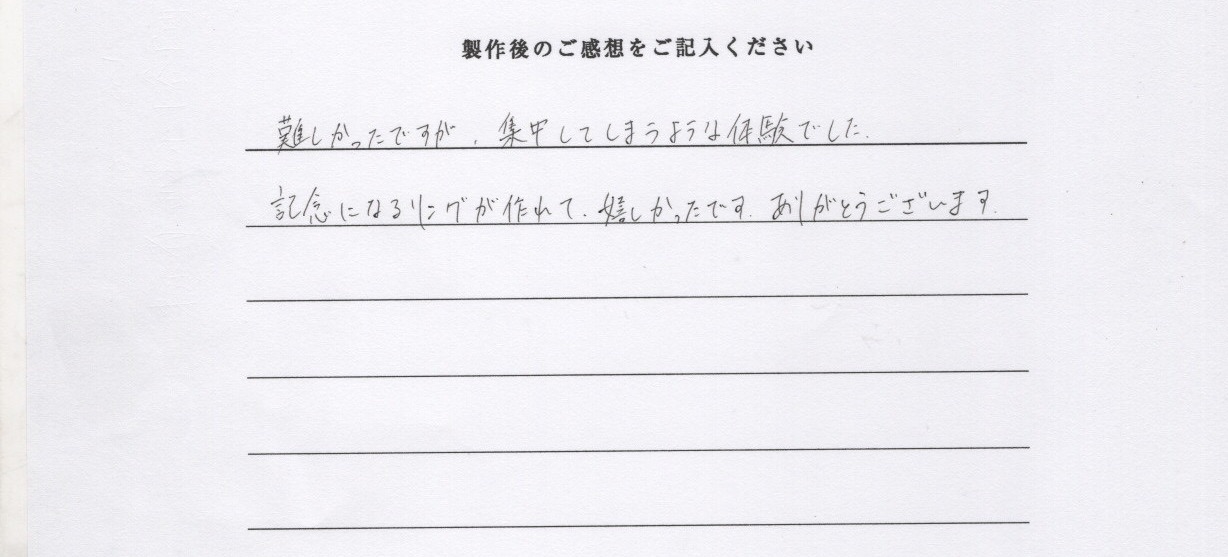 製作後のご感想をご記入ください
難しかったですが、集中してしまうような体験でした.
記念になるリングが作れて、嬉しかったです. ありがとうございます.